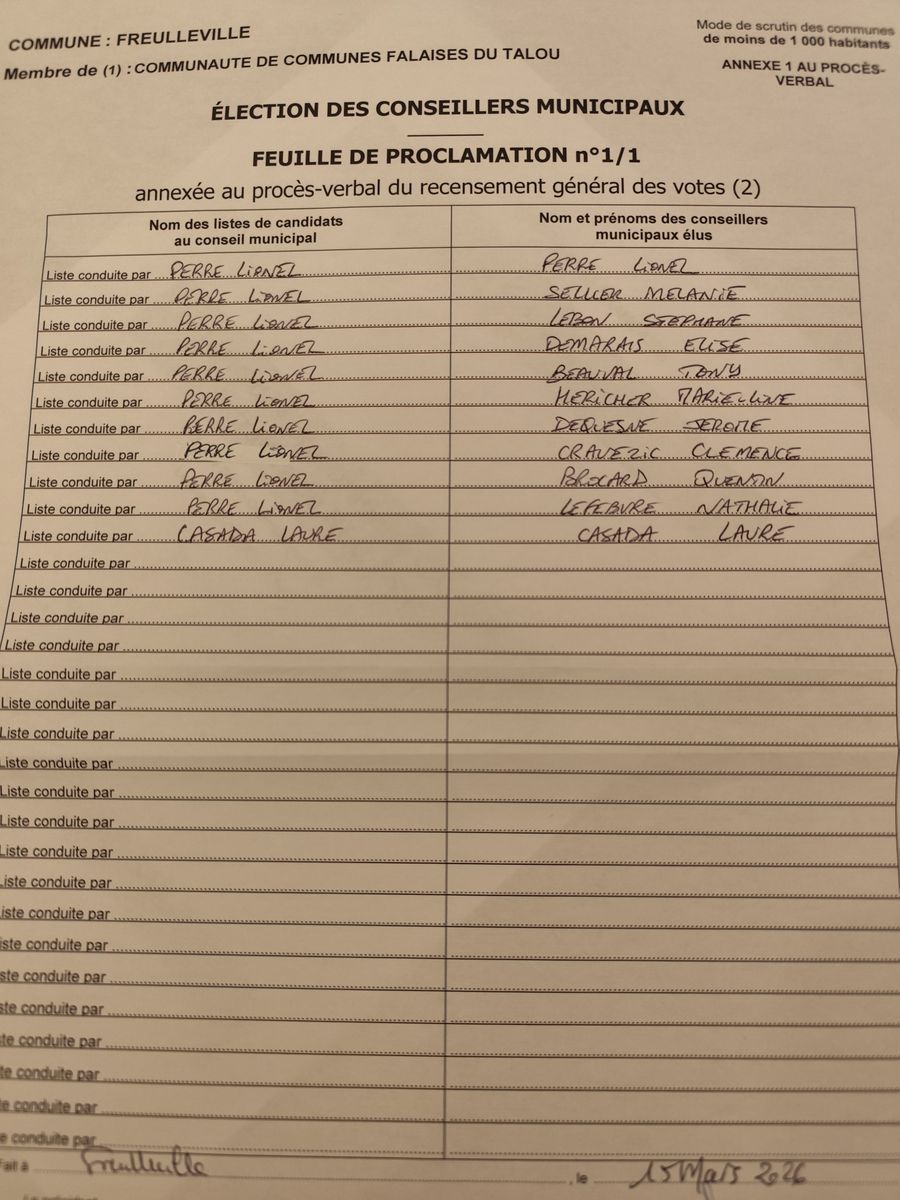 COMMUNE : FREULLEVILLE
Mode de scrutin des communes
de moins de 1 000 habitants
Membre de (1) : COMMUNAUTE DE COMMUNES FALAISES DU TALOU
ANNEXE 1 AU PROCÈS-
VERBAL
ÉLECTION DES CONSEILLERS MUNICIPAUX
FEUILLE DE PROCLAMATION n°1/1
annexée au procès-verbal du recensement général des votes (2)
Nom des listes de candidats
au conseil municipal
Nom et prénoms des conseillers
municipaux élus
Liste conduite par PERRE LIONEL PERRE LIONEL
Liste conduite par PERRE LIONEL SELLIER MELANIE
Liste conduite par PERRE LIONEL LEBON STEPHANE
Liste conduite par PERRE LIONEL DEMARAIS ELISE
Liste conduite par PERRE LIONEL BEAUVAL TONY
Liste conduite par PERRE LIONEL HERICHER MARIE-LINE
Liste conduite par PERRE LIONEL DEQUESNE JEROME
Liste conduite par PERRE LIONEL CRAVEZIC CLEMENCE
Liste conduite par PERRE LIONEL BROCARD QUENTIN
Liste conduite par PERRE LIONEL LEFEBVRE NATHALIE
Liste conduite par CASADA LAURE CASADA LAURE
Liste conduite par
Liste conduite par
Liste conduite par
Liste conduite par
Liste conduite par
Liste conduite par
Liste conduite par
Liste conduite par
Liste conduite par
Liste conduite par
Liste conduite par
Liste conduite par
iste conduite par
iste conduite par
ste conduite par
ste conduite par
te conduite par
te conduite par
e conduite par
e conduite par
Fait à Freulleville, le 15 Mars 2026